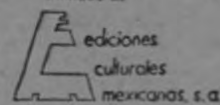 ediciones
culturales
mexicanas, s.a.